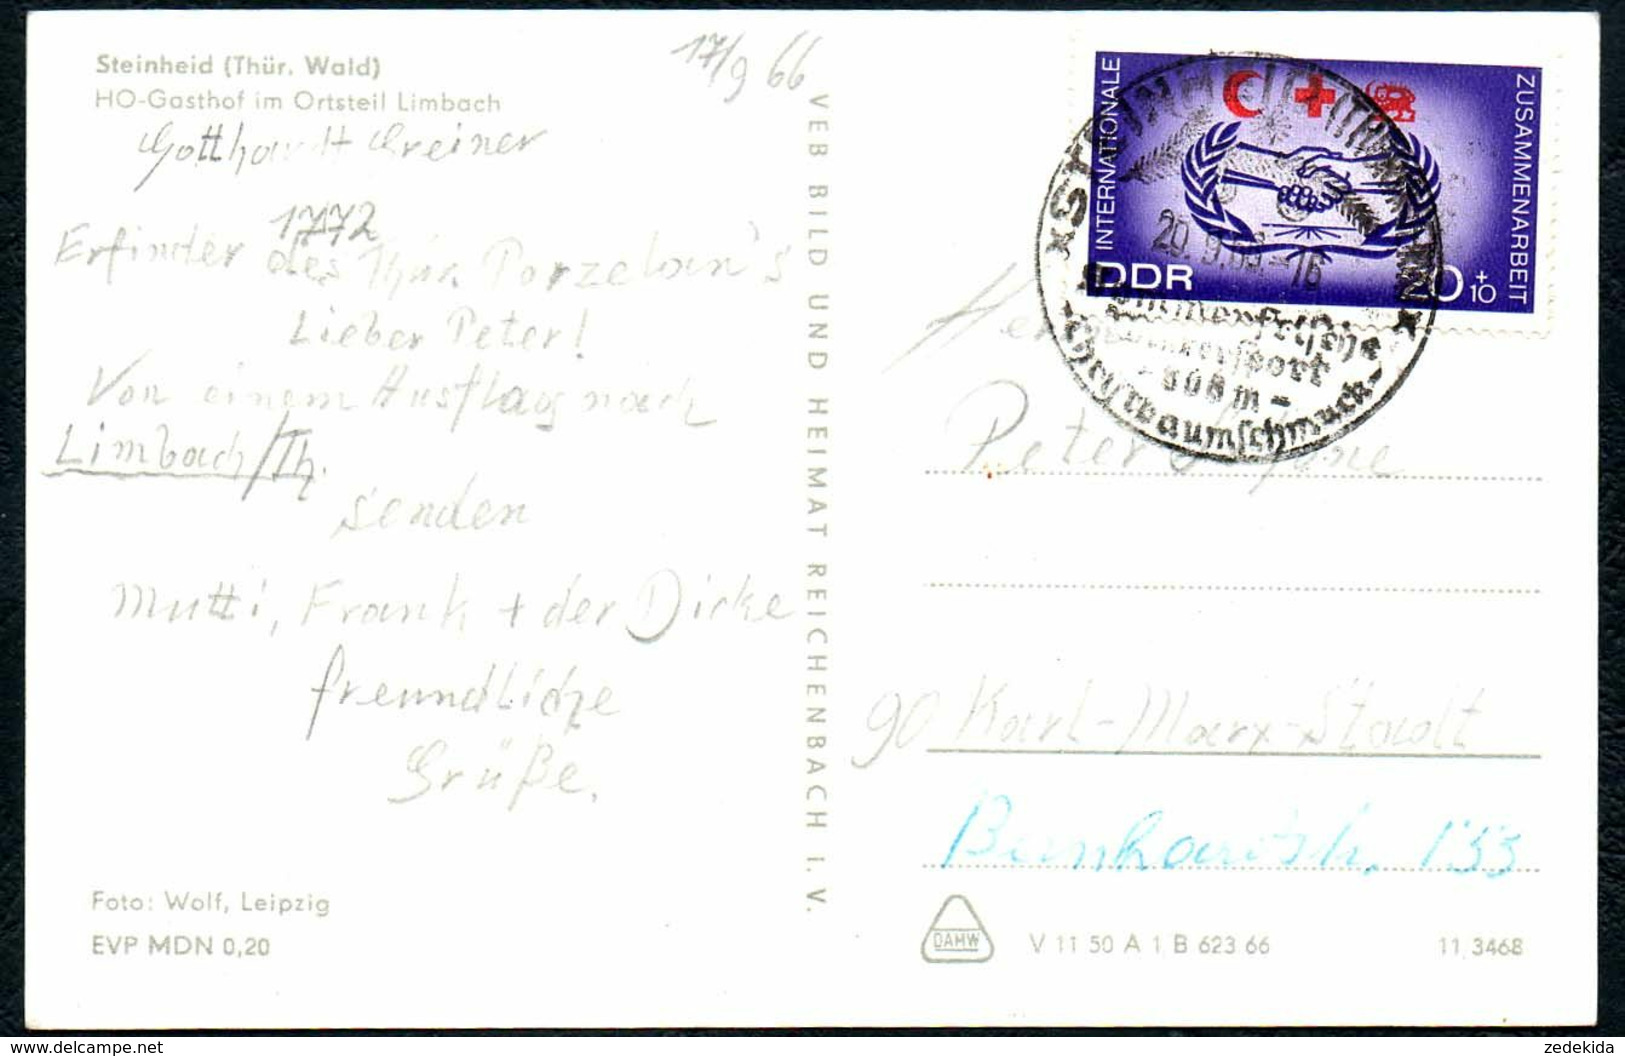 Steinheid (Thür. Wald)
HO-Gasthof im Ortsteil Limbach
17/9 66
Gotthardt Greiner
1772
Erfinder des Thür. Porzelan's
Lieber Peter!
Von einem Ausflag nach
Limbach/Th.
senden
Mutti, Frank + der Dicke
freundliche
Grüße.
Foto: Wolf, Leipzig
EVP MDN 0,20
VEB BILD UND HEIMAT REICHENBACH I. V.
INTERNATIONALE
ZUSAMMENARBEIT
DDR
+10
STEINHEID (THÜR
Sommerfrische
Wintersport
- 808 m -
Christbaumschmuck
Peter
90 Karl-Marx-Stadt
Bernhardstr. 133
DAMW
V 11 50 A 1 B 623 66
11 3468
www.delcampe.net
zedekida